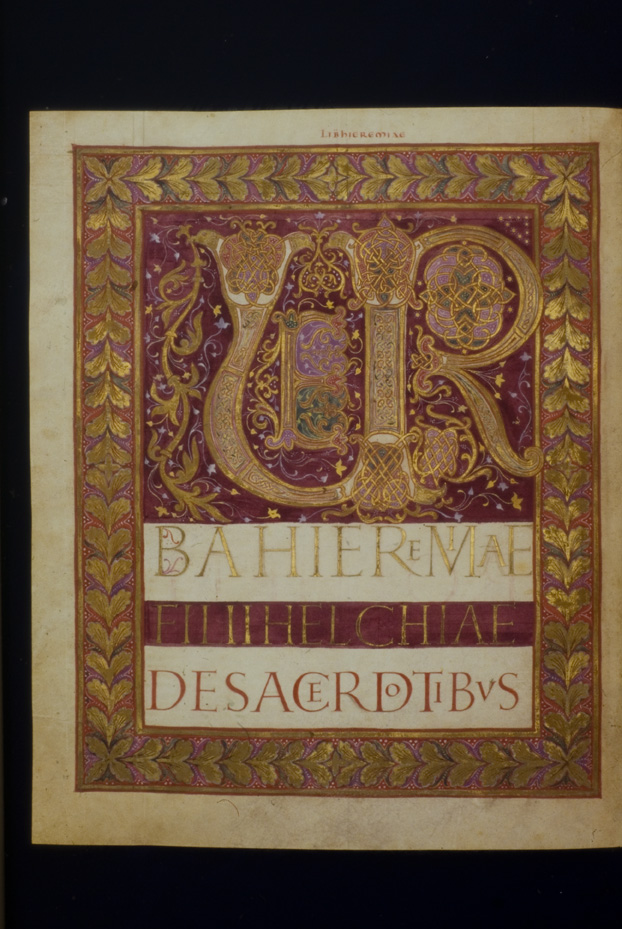 Lib hieremiae
VER
BA HIEREMIAE
FILII HELCHIAE
DE SACERDOTIBVS